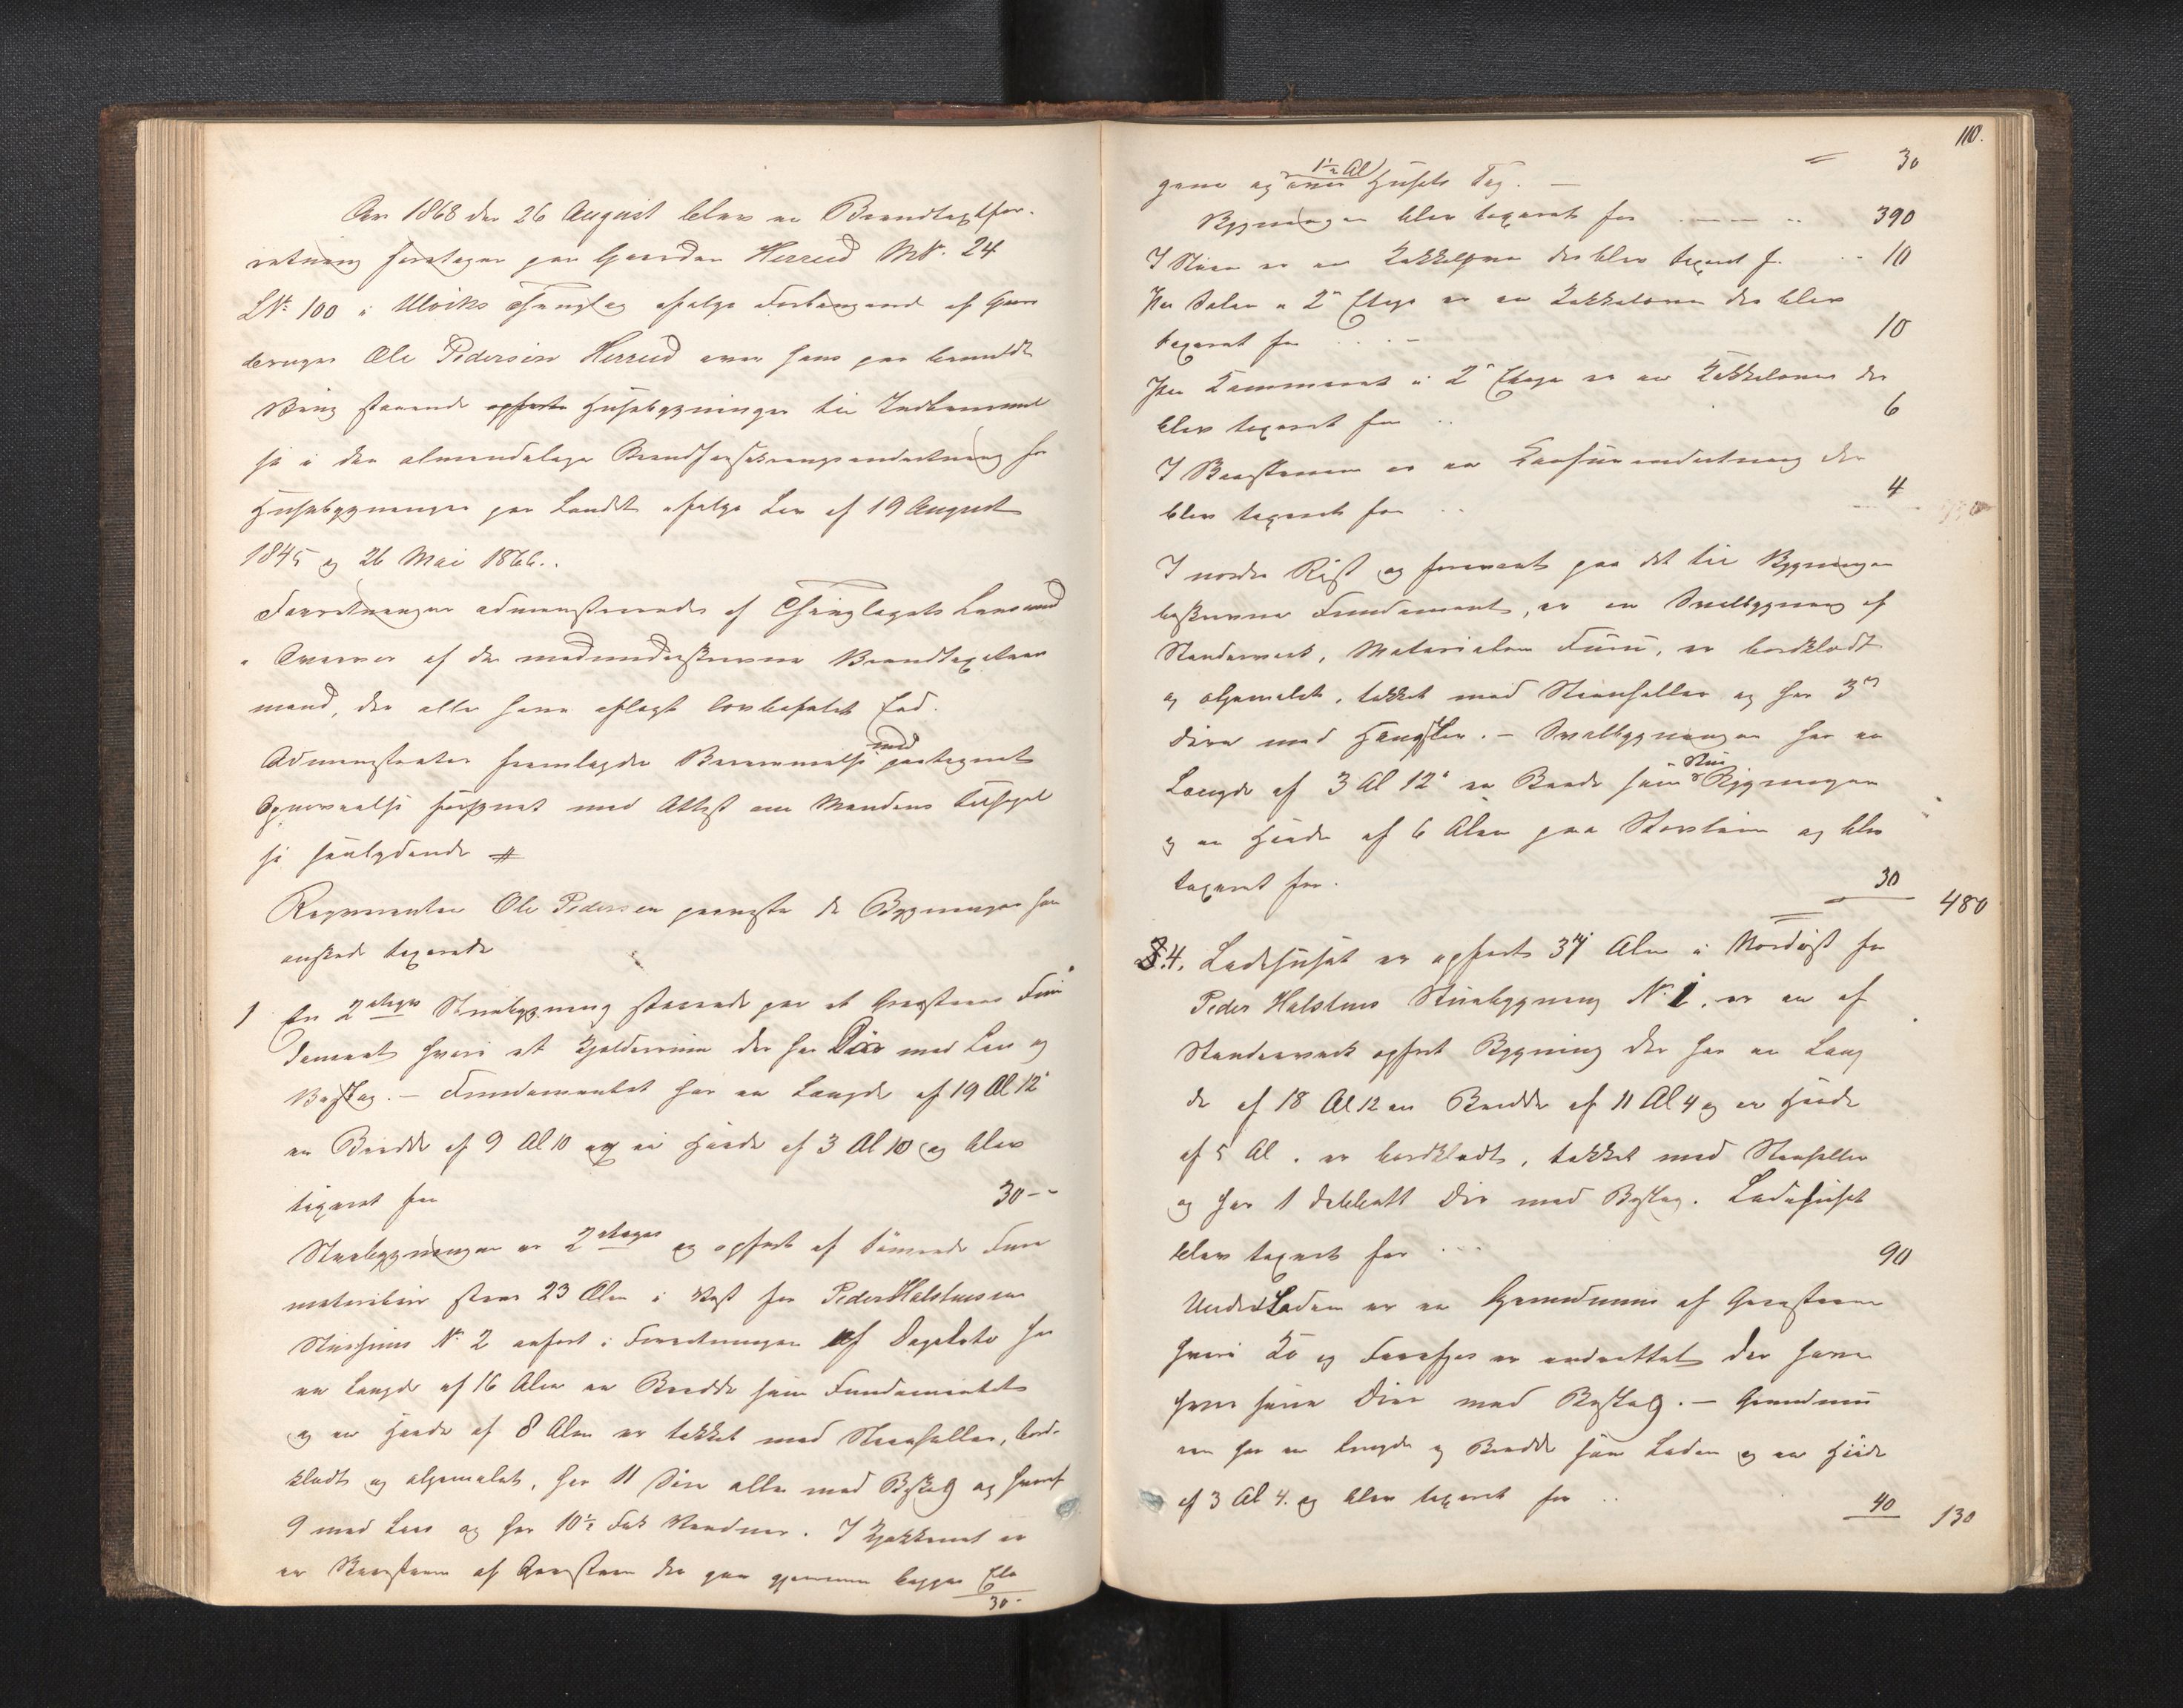 Aar 1868 den 26 August blev en Brandtaxtfor-
retning foretagen paa Gaarden Herreid MNr. 24
LNr. 100 i Ulviks Thinglag ifølge Forlangende af Gaard
bruger Ole Pedersen Herreid over hans paa bemeldte
Brug staaende opførte Husebygninger til Indlemmel
se i den almindelige Brandforsikringsindretning for
Husebygninger paa Landet ifølge Lov af 19 August
1845 og 26 Mai 1866.
Forretningen administreredes af Thinglagets Lensmand
i Overvær af de medunderskrevne Brandtaxations
mænd, der alle have aflagt lovbefalet Eed.
Administrator fremlagde Berammelse med paategnet
Opnævnelse forsynet med Attest om Mændenes Tilsigel
se saalydende #
Requirenten Ole Pedersen paaviste de Bygninger han
ønskede taxerede
1 En 2 etages Stuebygning staaende paa et Graastens Fun
dament hvori et Kjelderrum der har Dør med Laas og
Beslag. – Fundamentet har en Længde af 19 Al 12"
en Bredde af 9 Al 10 og en Høide af 3 Al 10 og blev
taxeret for 30 --
Stuebygningen er 2 etages og opført af tømrede Furu
materialier staar 23 Alen i Vest for Peder Halstensens
Stuehuus No 2 anført i Forretningen af Dagsdato har
en Længde af 16 Alen en Bredde som Fundamentet
og en Høide af 8 Alen er tækket med Steenheller, bord-
klædt og oljemalet, har 11 Døre alle med Beslag og hvoraf
9 med Laas og har 10½ Fak Vinduer. I Kjøkkenet er
en Skorsteen af Graasteen der gaar gjennem begge Eta
30 -
110.
gene og 1½ Al over Husets Tag. – = 30
Bygningen blev taxeret for 390
I Stuen er en Kakkelovn der blev taxeret f. 10
Paa Salen i 2den Etage er en Kakkelovn der blev
taxeret for 10
Paa Kammeret i 2den Etage er en Kakkelovn der
blev taxeret for 6
I Skorstenen er en indretning der
blev taxeret for 4
I nordre Rist og forenet paa det til Bygningen
beskrevne Fundament, er en Svalbygning af
Standerværk, Materialen Furu, er bordklædt
og oljemalet, tækket med Steenheller og har 3de
Døre med Hængsler. – Svalbygningen har en
Længde af 3 Al 12" en Bredde som Stue Bygningen
og en Høide af 6 Alen paa Støvlein og blev
taxeret for. 30 480
4. Ladehuset er opført 34 Alen i Nordøst for
Peder Halstens Stuebygning No 1. er en af
Standerværk opført Bygning der har en Læng
de af 18 Al 12 en Bredde af 11 Al 4 og en Høide
af 5 Al. er bordklædt, tækket med Steenheller
og har 1 dobbelt Dør med Beslag. Ladehuset
blev taxeret for 90
Under Laden er en Grundmuur af Graasteen
hvori Ko og Faarefjøs er indrettet der have
hver sin Dør med Beslag. – Grundmu
ren har en Længde og Bredde som Laden og en Høide
af 3 Al 4. og blev taxeret for 40 130